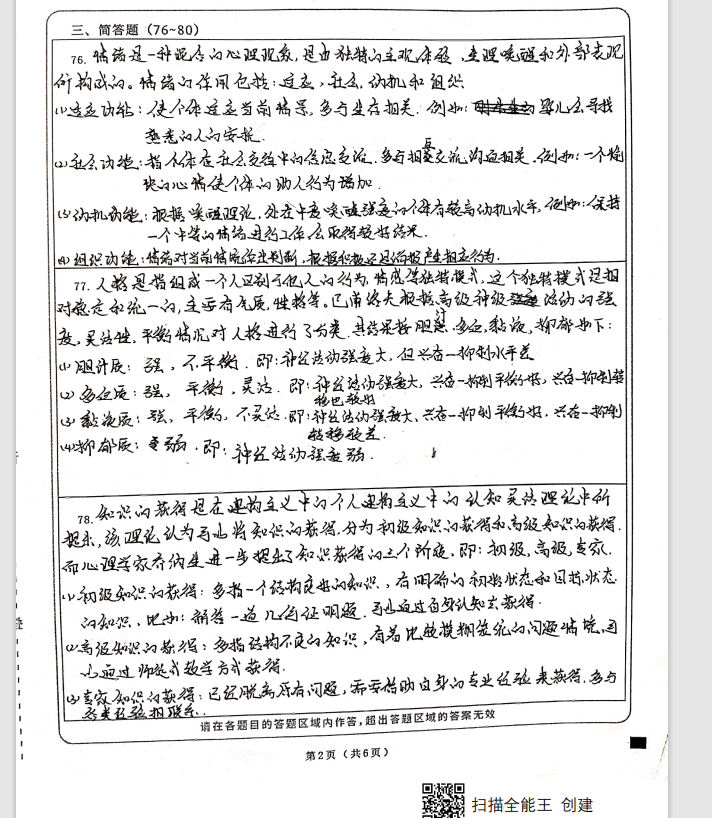 三、简答题（76~80）
76. 情绪是一种混合的心理现象，是由独特的主观体验，生理唤醒和外部表现
所构成的。情绪的作用包括：适应，社会，动机和组织
(1)适应功能：使个体适应当前情景，多与生存相关．例如：婴儿会寻找
熟悉的人的安抚．
(2)社会功能：指个体在社会交往中的信息交流，多与相互交流沟通相关．例如：一个愉
快的心情使个体的助人行为增加．
(3)动机功能：根据唤醒理论，处在中度唤醒强度的个体有较高动机水平，例如：保持
一个中等的情绪进行工作会取得较好结果．
(4)组织功能：情绪对当前情境作出判断，根据积极还是消极产生相应行为．
77. 人格是指组成一个人区别于他人的行为，情感等独特模式，这个独特模式是相
对稳定和统一的，主要有气质，性格等。巴甫洛夫根据高级神经活动的强
度，灵活性，平衡情况对人格进行了分类，其结果按胆汁，多血，黏液，抑郁如下：
(1)胆汁质：强，不平衡．即：神经活动强度大，但兴奋一抑制水平差
(2)多血质：强，平衡，灵活．即：神经活动强度大，兴奋一抑制平衡好，兴奋一抑制转
移也较好
(3)黏液质：强，平衡，不灵活．即：神经活动强度大，兴奋一抑制平衡好，兴奋一抑制
转移较差．
(4)抑郁质：弱．即：神经活动强度弱．
78. 知识的获得是在建构主义中的个人建构主义中的认知灵活理论中所
提示，该理论认为可以将知识的获得，分为初级知识的获得和高级知识的获得．
而心理学家乔纳生进一步提出了知识获得的三个阶段，即：初级，高级，专家．
(1)初级知识的获得：多指一个结构良好的知识，有明确的初始状态和目标状态
的知识，比如：解答一道几何证明题．可以通过自身认知去获得．
(2)高级知识的获得：多指结构不良的知识，有着比较模糊笼统的问题情境，可
以通过师徒式教学方式获得．
(3)专家知识的获得：已经脱离所有问题，需要借助自身的专业经验来获得，多与
经验相联系．
请在各题目的答题区域内作答，超出答题区域的答案无效
第2页（共6页）
扫描全能王 创建